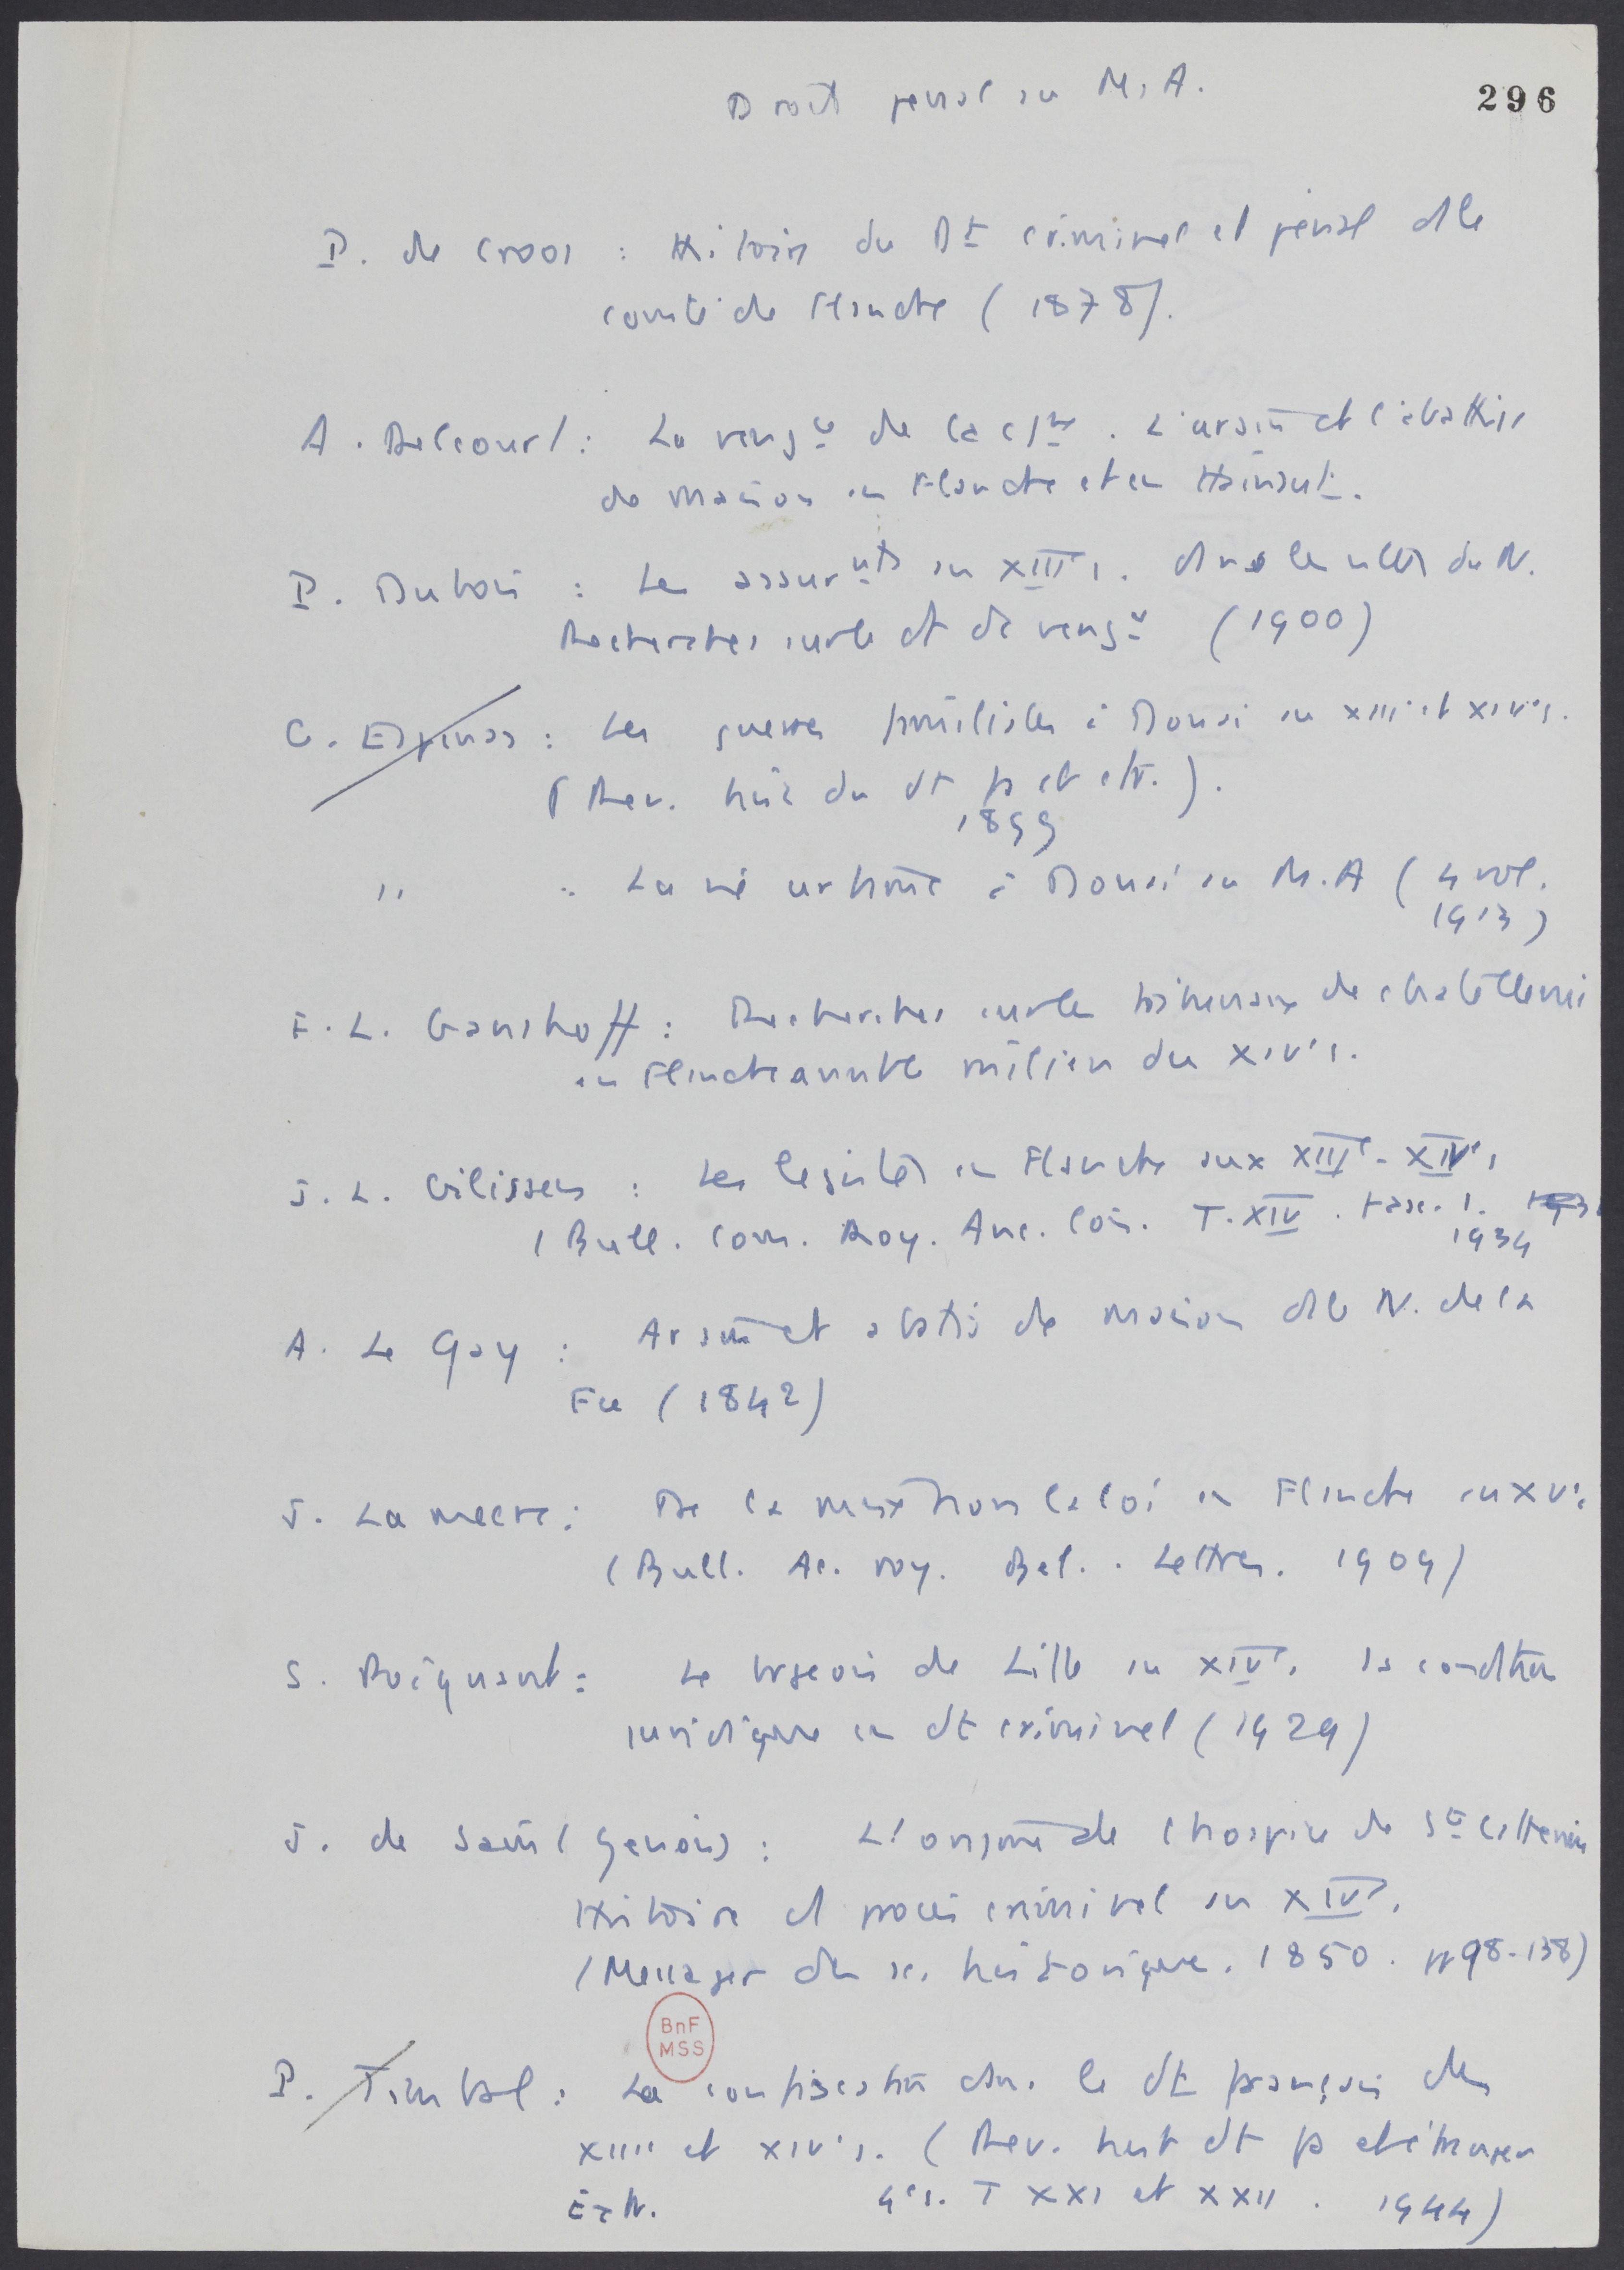 Droit pénal au M. A.
296
P. de Croos : Histoire du Dt criminel et pénal ds le
comté de Flandre (1878).
A. Delcourt : La vengce de la cne. L'arsin et l'abattis
de maison en Flandre et en Hainaut.
P. Dubois : Les assurnts au XIIIe s. dans les villes du N.
Recherches sur le dt de vengce (1900)
G. Espinas : Les guerres familiales à Douai au XIIIe et XIVe s.
(Rev. hist du dt fs et etr.).
1899
" : La vie urbaine à Douai au M.A (4 vol.
1913)
F. L. Ganshoff : Recherches sur les tribunaux de chatellenie
en Flandre avant le milieu du XIVe s.
J. L. Gilissen : Les legistes en Flandre aux XIIIe - XIVe s
(Bull. Com. Roy. Anc. Lois. T. XIV. Fasc. 1.
1939
A. Le Gay : Arsin et abattis de maison ds le N. de la
Fce (1842)
J. Lameere : De la mise hors la loi en Flandre au XVe s
(Bull. Ac. roy. Bel. . Lettres. 1909)
S. Poignant : Le brgeois de Lille au XIVe s. la condition
juridique en dt criminel (1929)
J. de Saint Genois : L'origine de l'hospice de Ste Catherine
Histoire d procès criminel au XIVe s.
(Messager des sc. historique. 1850. pp 98-138)
BnF
MSS
P. Timbal : La confiscation dans le dt français des
XIIIe et XIVe s. (Rev. hist dt fs et étranger
B.N. 4e s. T XXI et XXII. 1944)